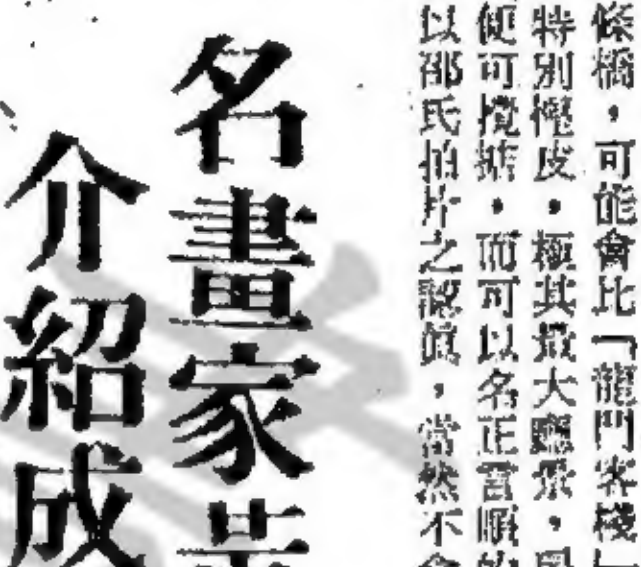 條橋，可能會比「龍門客棧」
特別慳皮，極其最大廳景，
便可攪掂，而可以名正言順的
以邵氏拍片之認真，當然不會
名畫家
介紹成